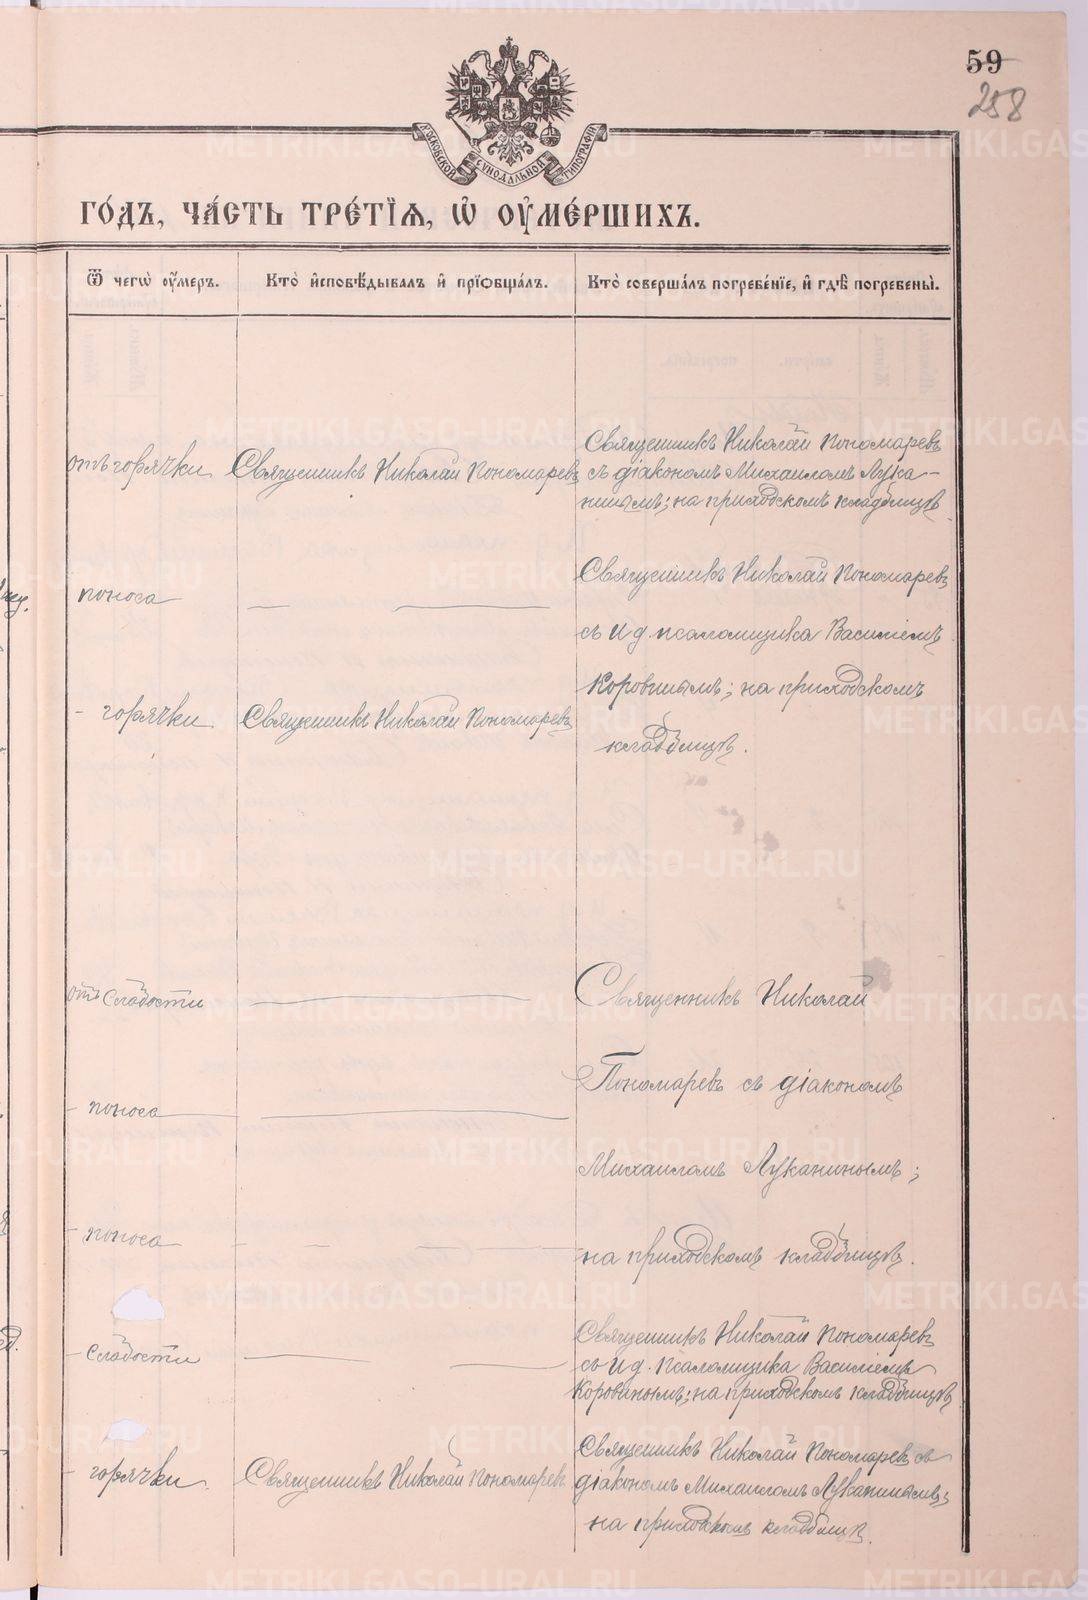 59
258
МОСКОВСКОЙ СѴНОДАЛЬНОЙ ТИПОГРАФІИ
ГО́ДЪ, ЧА́СТЬ ТРЕ́ТЇѦ, Ѡ҆ ОУ҆МЕ́РШИХЪ.
Ѿ чегѡ̀ оу҆́меръ.
Кто̀ и҆сповѣ́дывалъ и҆ прїѡбща́лъ.
Кто̀ соверша́лъ погребе́нїе, и҆ гдѣ̀ погребены̀.
отъ горячки
Священникъ Николай Пономаревъ
Священникъ Николай Пономаревъ
съ діакономъ Михаиломъ Лука-
нинымъ; на приходскомъ кладбищѣ
поноса
Священникъ Николай Пономаревъ
съ и д псаломщика Василіемъ
Коровинымъ; на приходскомъ
кладбищѣ.
- горячки
Священникъ Николай Пономаревъ
отъ слабости
Священникъ Николай
Пономаревъ съ діакономъ
Михаиломъ Луканинымъ;
на приходскомъ кладбищѣ.
- поноса
- поноса
- слабости
Священникъ Николай Пономаревъ
съ и д. псаломщика Василіемъ
Коровинымъ; на приходскомъ кладбищѣ
- горячки
Священникъ Николай Пономаревъ
Священникъ Николай Пономаревъ съ
діакономъ Михаиломъ Луканинымъ;
на приходском кладбищѣ.
METRIKI.GASO-URAL.RU